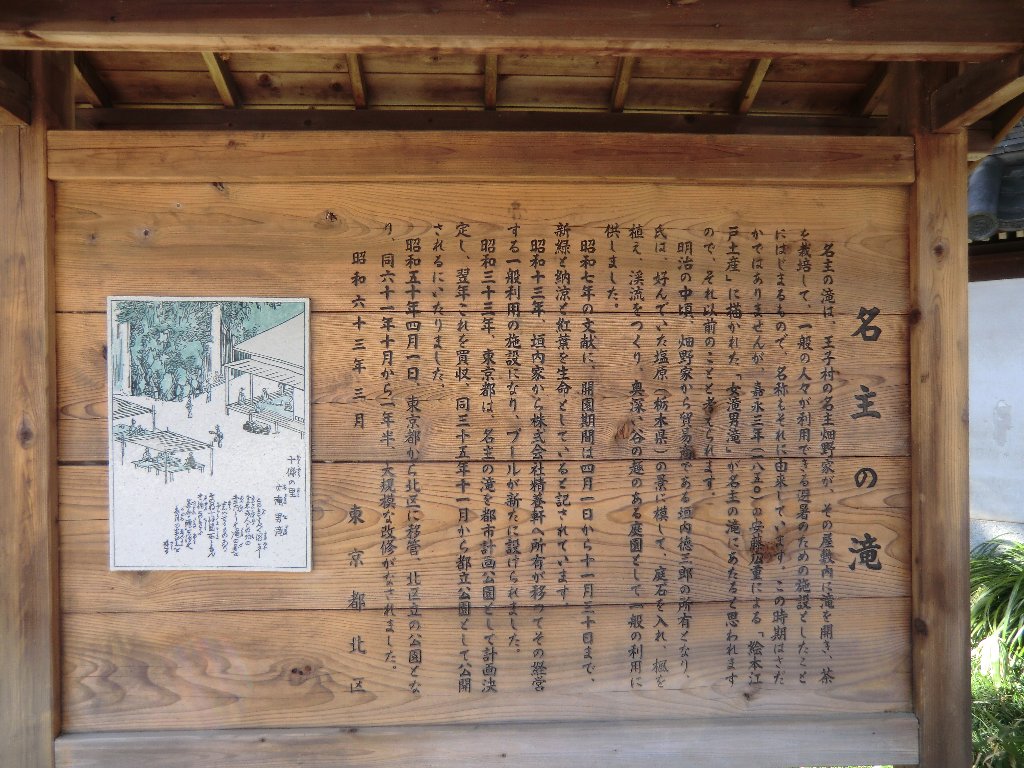 名主の滝
名主の滝は、王子村の名主畑野家が、その屋敷内に滝を開き、茶
を栽培して、一般の人々が利用できる避暑のための施設としたこと
にはじまるもので、名称もそれに由来しています。この時期はさだ
かではありませんが、嘉永三年（一八五〇）の安藤広重による「絵本江
戸土産」に描かれた「女滝男滝」が名主の滝にあたると思われます
ので、それ以前のことと考えられます。
明治の中頃、畑野家から貿易商である垣内徳三郎の所有となり、
氏は、好んでいた塩原（栃木県）の景に模して、庭石を入れ、楓を
植え、渓流をつくり、奥深い谷の趣のある庭園として一般の利用に
供しました。
昭和七年の文献に、開園期間は四月一日から十一月三十日まで、
新緑と納涼と紅葉を生命としていると記されています。
昭和十三年、垣内家から株式会社精養軒へ所有が移ってその経営
する一般利用の施設になり、プールが新たに設けられました。
昭和三十三年、東京都は、名主の滝を都市計画公園として計画決
定し、翌年これを買収、同三十五年十一月から都立公園として公開
されるにいたりました。
昭和五十年四月一日、東京都から北区に移管、北区立の公園とな
り、同六十一年十月から一年半、大規模な改修がなされました。
昭和六十三年三月
東京都北区
十條の里
女滝男滝